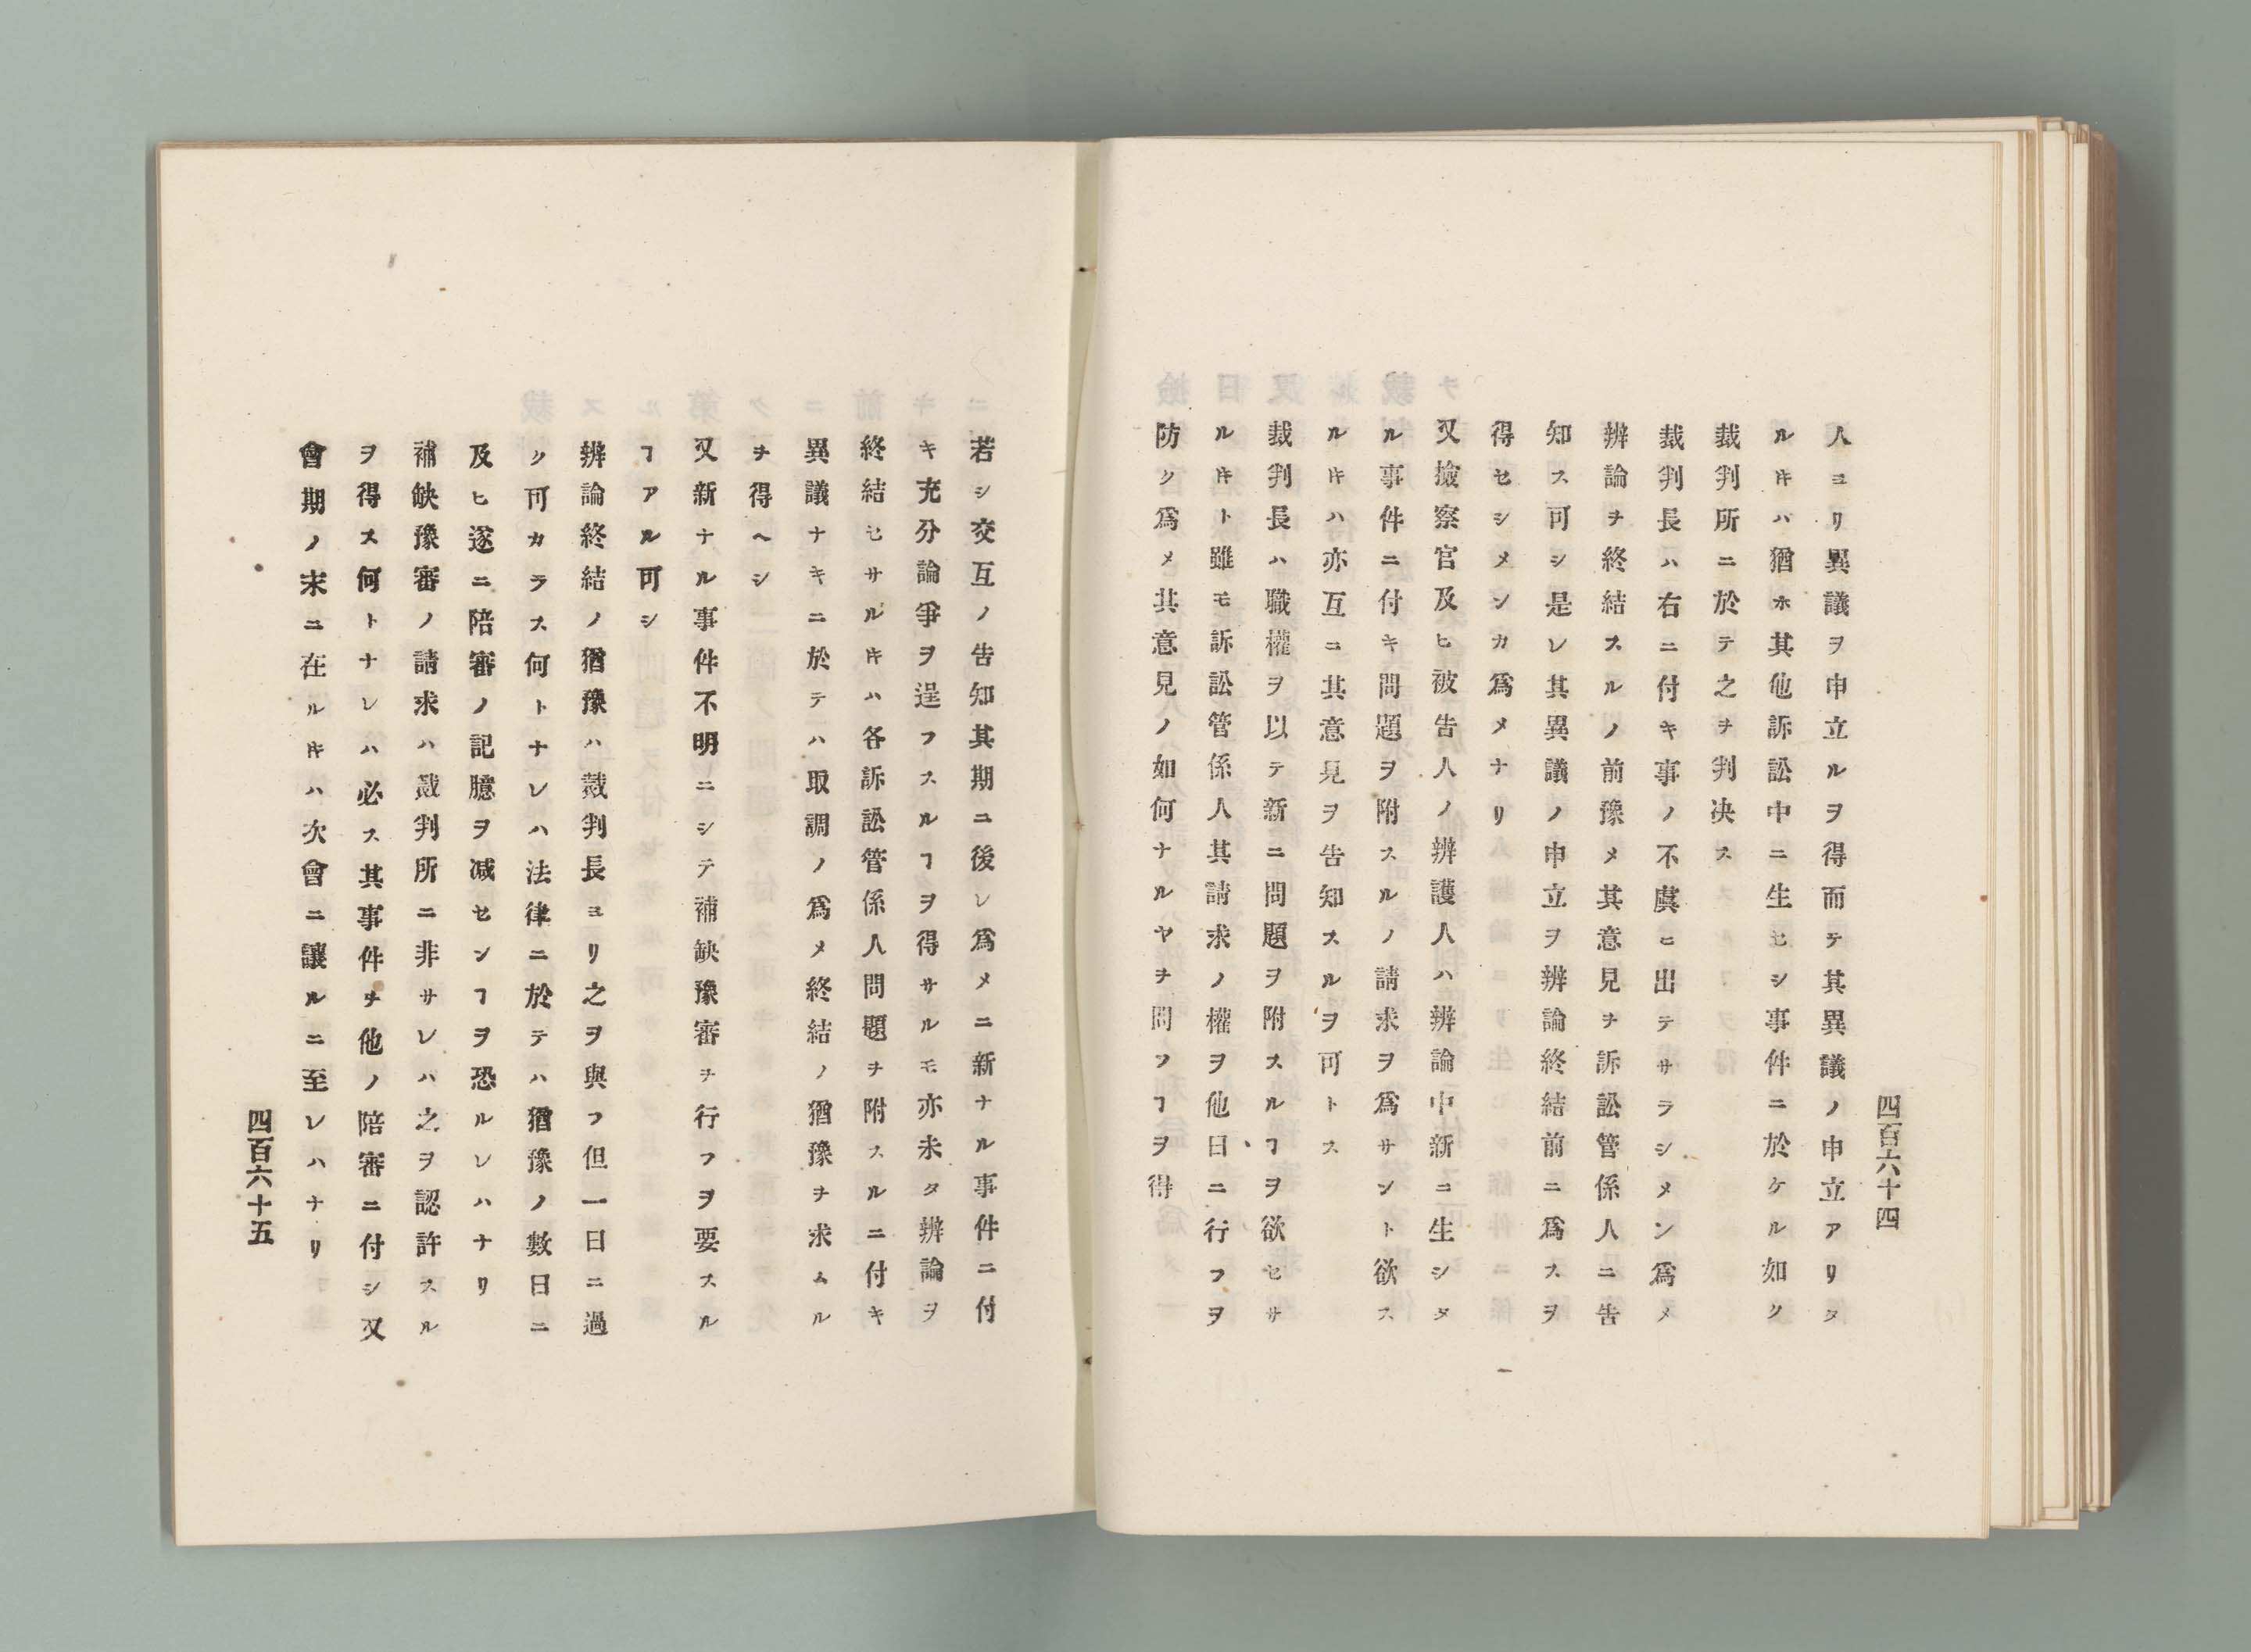 四百六十四
人ヨリ異議ヲ申立ルヲ得而テ其異議ノ申立アリタ
ルキハ猶ホ其他訴訟中ニ生セシ事件ニ於ケル如ク
裁判所ニ於テ之ヲ判决ス
裁判長ハ右ニ付キ事ノ不虞ニ出テサラシメン爲メ
辨論ヲ終結スルノ前豫メ其意見ヲ訴訟管係人ニ告
知ス可シ是レ其異議ノ申立ヲ辨論終結前ニ爲スヲ
得セシメンカ爲メナリ
又撿察官及ヒ被告人ノ辨護人ハ辨論中新ニ生シタ
ル事件ニ付キ問題ヲ附スルノ請求ヲ爲サント欲ス
ルキハ亦互ニ其意見ヲ告知スルヲ可トス
裁判長ハ職權ヲ以テ新ニ問題ヲ附スルヿヲ欲セサ
ルキト雖モ訴訟管係人其請求ノ權ヲ他日ニ行フヲ
防ク爲メ其意見ノ如何ナルヤヲ問フヿヲ得
若シ交互ノ告知其期ニ後レ爲メニ新ナル事件ニ付
キ充分論爭ヲ逞フスルヿヲ得サルモ亦未タ辨論ヲ
終結セサルキハ各訴訟管係人問題ヲ附スルニ付キ
異議ナキニ於テハ取調ノ爲メ終結ノ猶豫ヲ求ムル
ヲ得ヘシ
又新ナル事件不明ニシテ補缺豫審ヲ行フヲ要スル
ヿアル可シ
辨論終結ノ猶豫ハ裁判長ヨリ之ヲ與フ但一日ニ過
ク可カラス何トナレハ法律ニ於テハ猶豫ノ數日ニ
及ヒ遂ニ陪審ノ記臆ヲ减センヿヲ恐ルレハナリ
補缺豫審ノ請求ハ裁判所ニ非サレハ之ヲ認許スル
ヲ得ス何トナレハ必ス其事件ヲ他ノ陪審ニ付シ又
會期ノ末ニ在ルキハ次會ニ讓ルニ至レハナリ
四百六十五